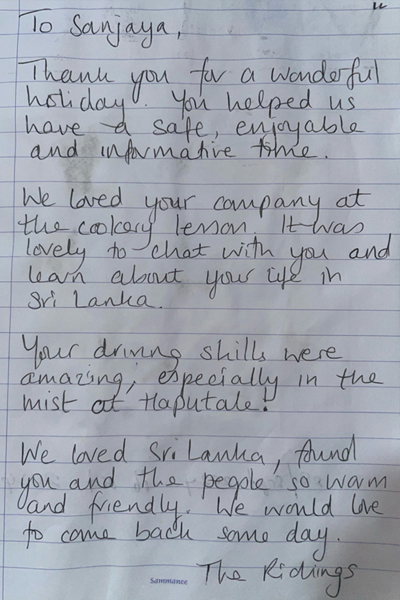 To Sanjaya,
Thank you for a wonderful
holiday. You helped us
have a safe, enjoyable
and informative time.
We loved your company at
the cookery lesson. It was
lovely to chat with you and
learn about your life in
Sri Lanka.
Your driving skills were
amazing, especially in the
mist at Haputale!
We loved Sri Lanka, found
you and the people so warm
and friendly. We would love
to come back some day.
The Ridings
Sammanee